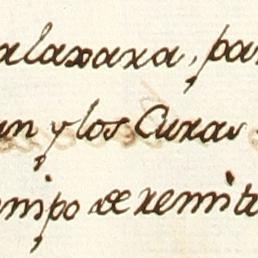 alaxara, par
an y los Curas
empo de remit